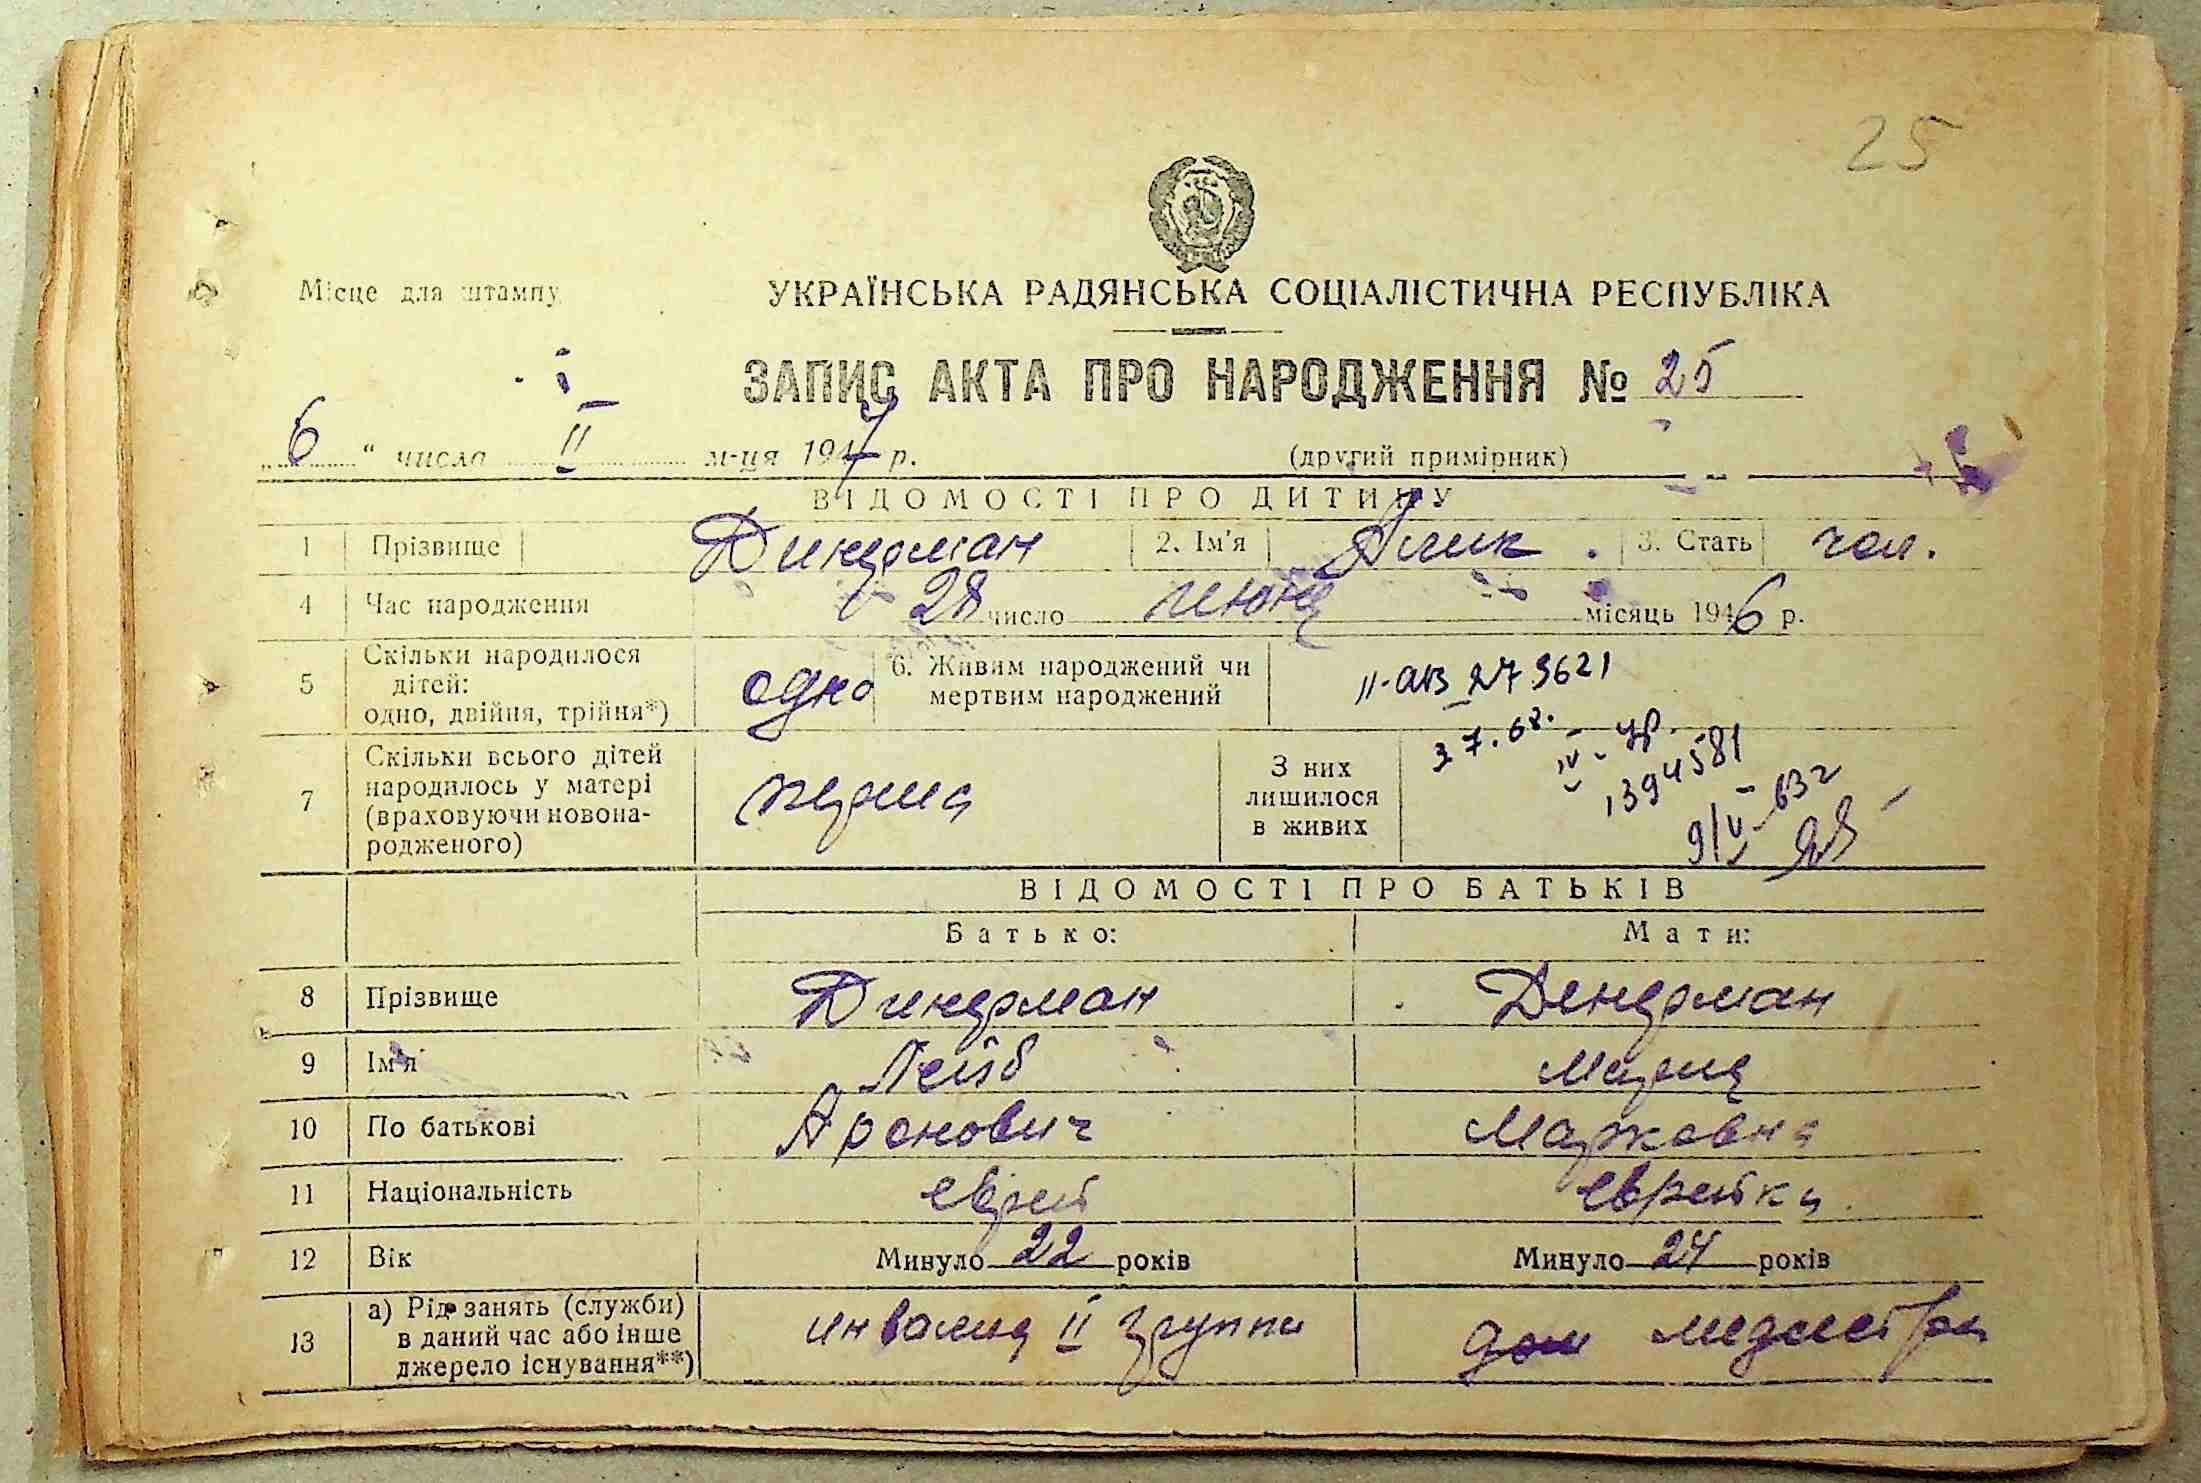 25
Місце для штампу
УКРАЇНСЬКА РАДЯНСЬКА СОЦІАЛІСТИЧНА РЕСПУБЛІКА
ЗАПИС АКТА ПРО НАРОДЖЕННЯ № 25
6 " числа II м-ця 1947 р.
(другий примірник)
ВІДОМОСТІ ПРО ДИТИНУ
1 Прізвище Диндрман 2. Ім'я Алик. 3. Стать чол.
4 Час народження 28 число июня місяць 1946 р.
5 Скільки народилося дітей: одно, двійня, трійня*) одно 6. Живим народжений чи мертвим народжений II-АВ 273621
7 Скільки всього дітей народилось у матері (враховуючи новонародженого) перша З них лишилося в живих
3 7.68.
IV-УР.
1394581
9/V-632
ВІДОМОСТІ ПРО БАТЬКІВ
Батько: Мати:
8 Прізвище Диндрман Дендрман
9 Ім'я Лейб Мария
10 По батькові Аронович Марковна
11 Національність еврей еврейка.
12 Вік Минуло 22 років Минуло 24 років
13 а) Рід занять (служби) в даний час або інше джерело існування**) инвалид II группи дом медсестра